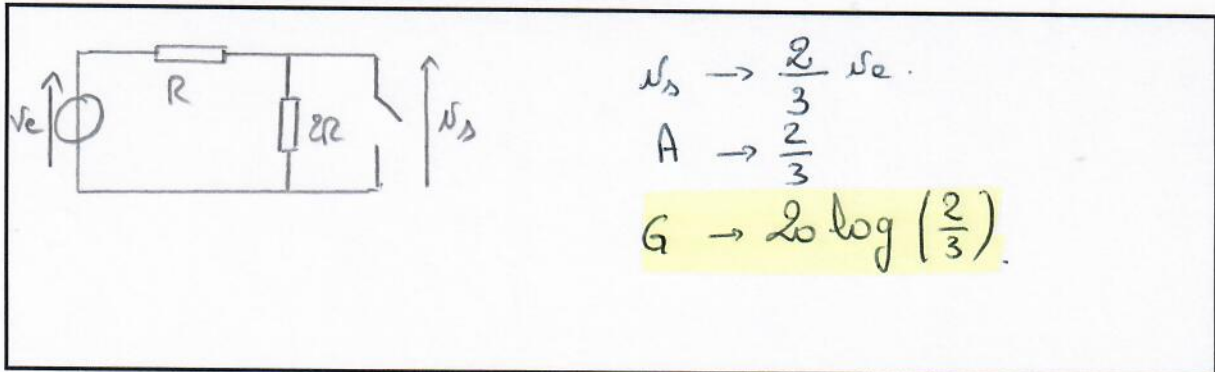 ve R 2R vs
vs → 2/3 ve.
A → 2/3
G → 20 log (2/3).